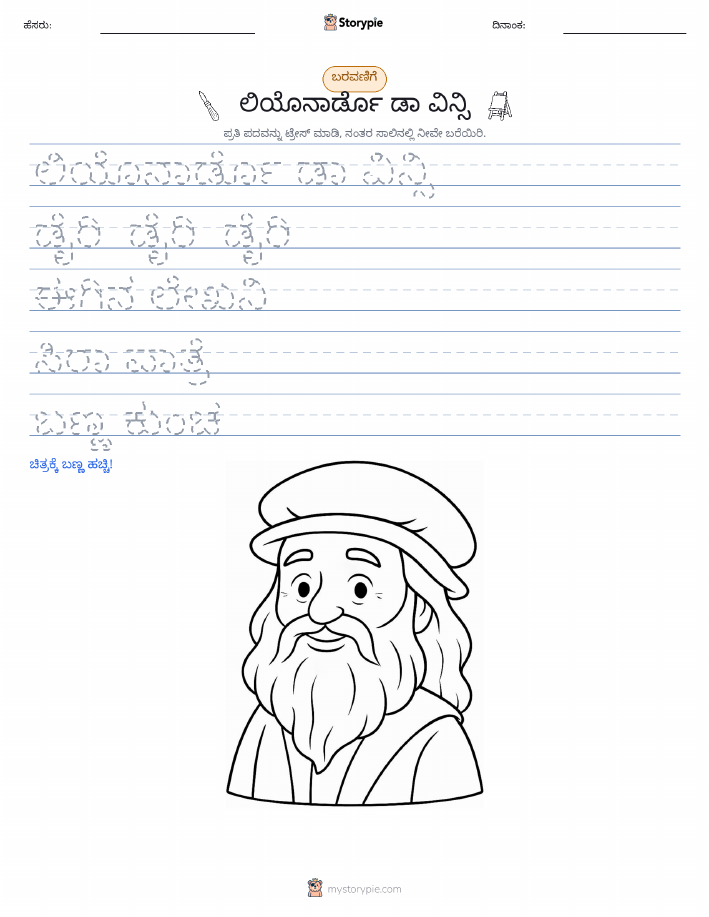 ಹೆಸರು: Storypie ದಿನಾಂಕ:
ಬರವಣಿಗೆ
ಲಿಯೊನಾರ್ಡೊ ಡಾ ವಿನ್ಸಿ
ಪ್ರತಿ ಪದವನ್ನು ಟ್ರೇಸ್ ಮಾಡಿ, ನಂತರ ಸಾಲಿನಲ್ಲಿ ನೀವೇ ಬರೆಯಿರಿ.
ಲಿಯೊನಾರ್ಡೊ ಡಾ ವಿನ್ಸಿ
ಡೈರಿ ಡೈರಿ ಡೈರಿ
ಈಗಿನ ಲೇಖನಿ
ಸಿರಾ ಪಾತ್ರೆ
ಬಣ್ಣ ಕುಂಚ
ಚಿತ್ರಕ್ಕೆ ಬಣ್ಣ ಹಚ್ಚಿ!
mystorypie.com